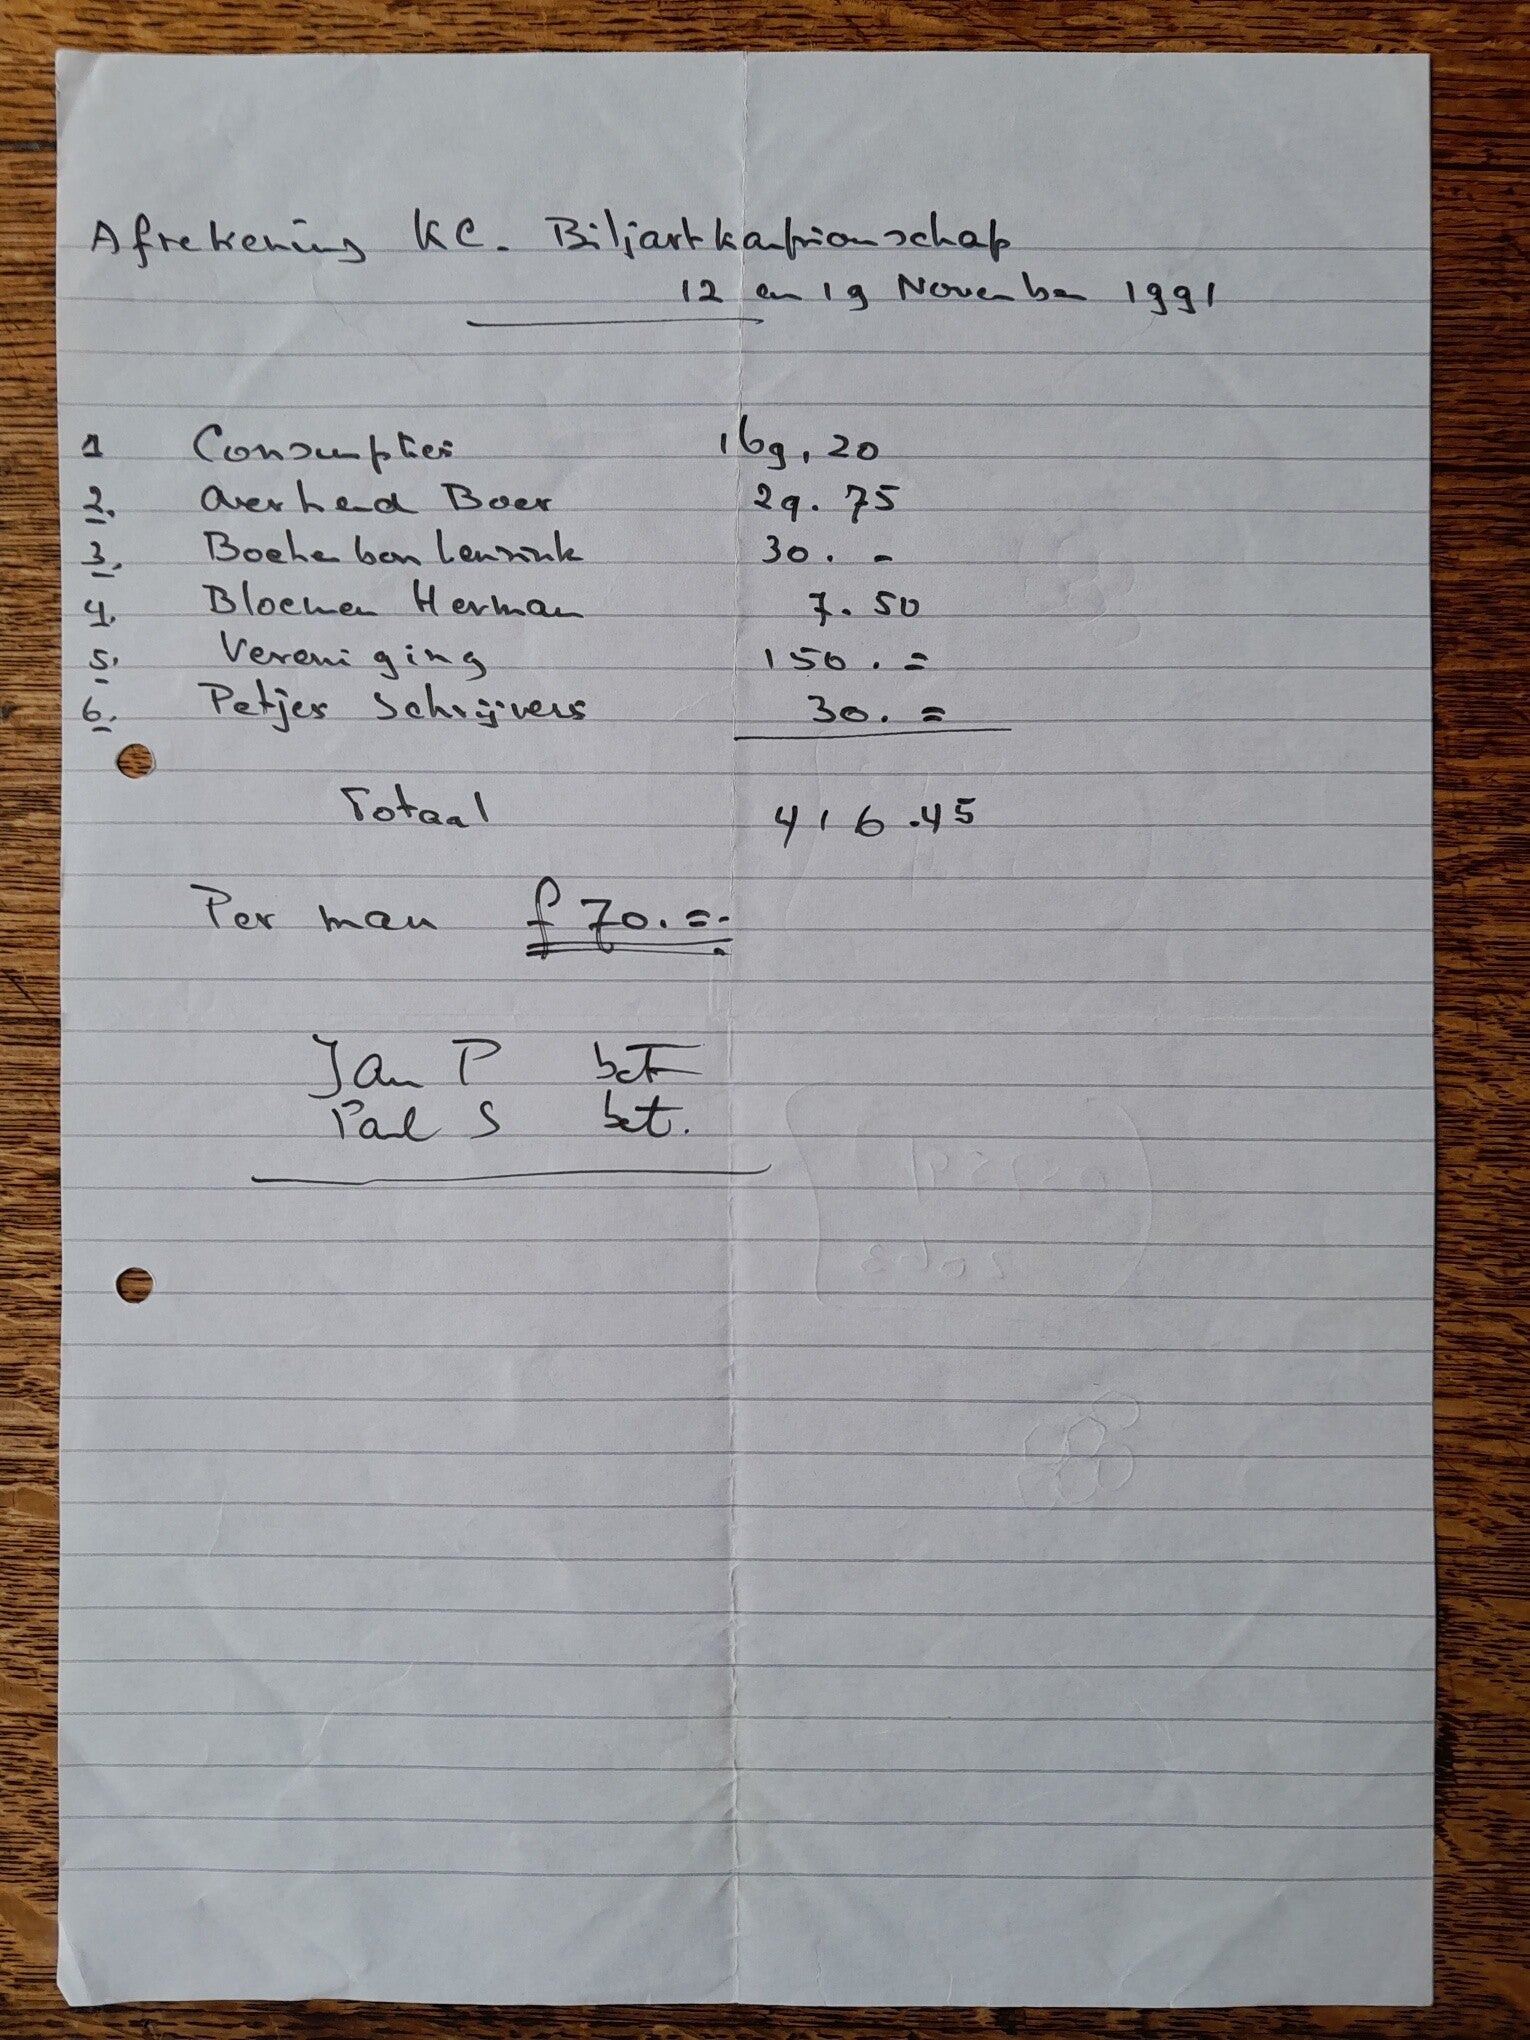 Afrekening KC. Biljartkampionschap
12 en 19 November 1991
1 Consumpties 169,20
2. Overhead Boer 29.75
3. Boekenbon Lensink 30.-
4. Bloemen Herman 7.50
5. Vereniging 150.=
6. Petjes Schrijvers 30.=
Totaal 416.45
Per man f 70.=-
Jan P bet
Paul S bet.